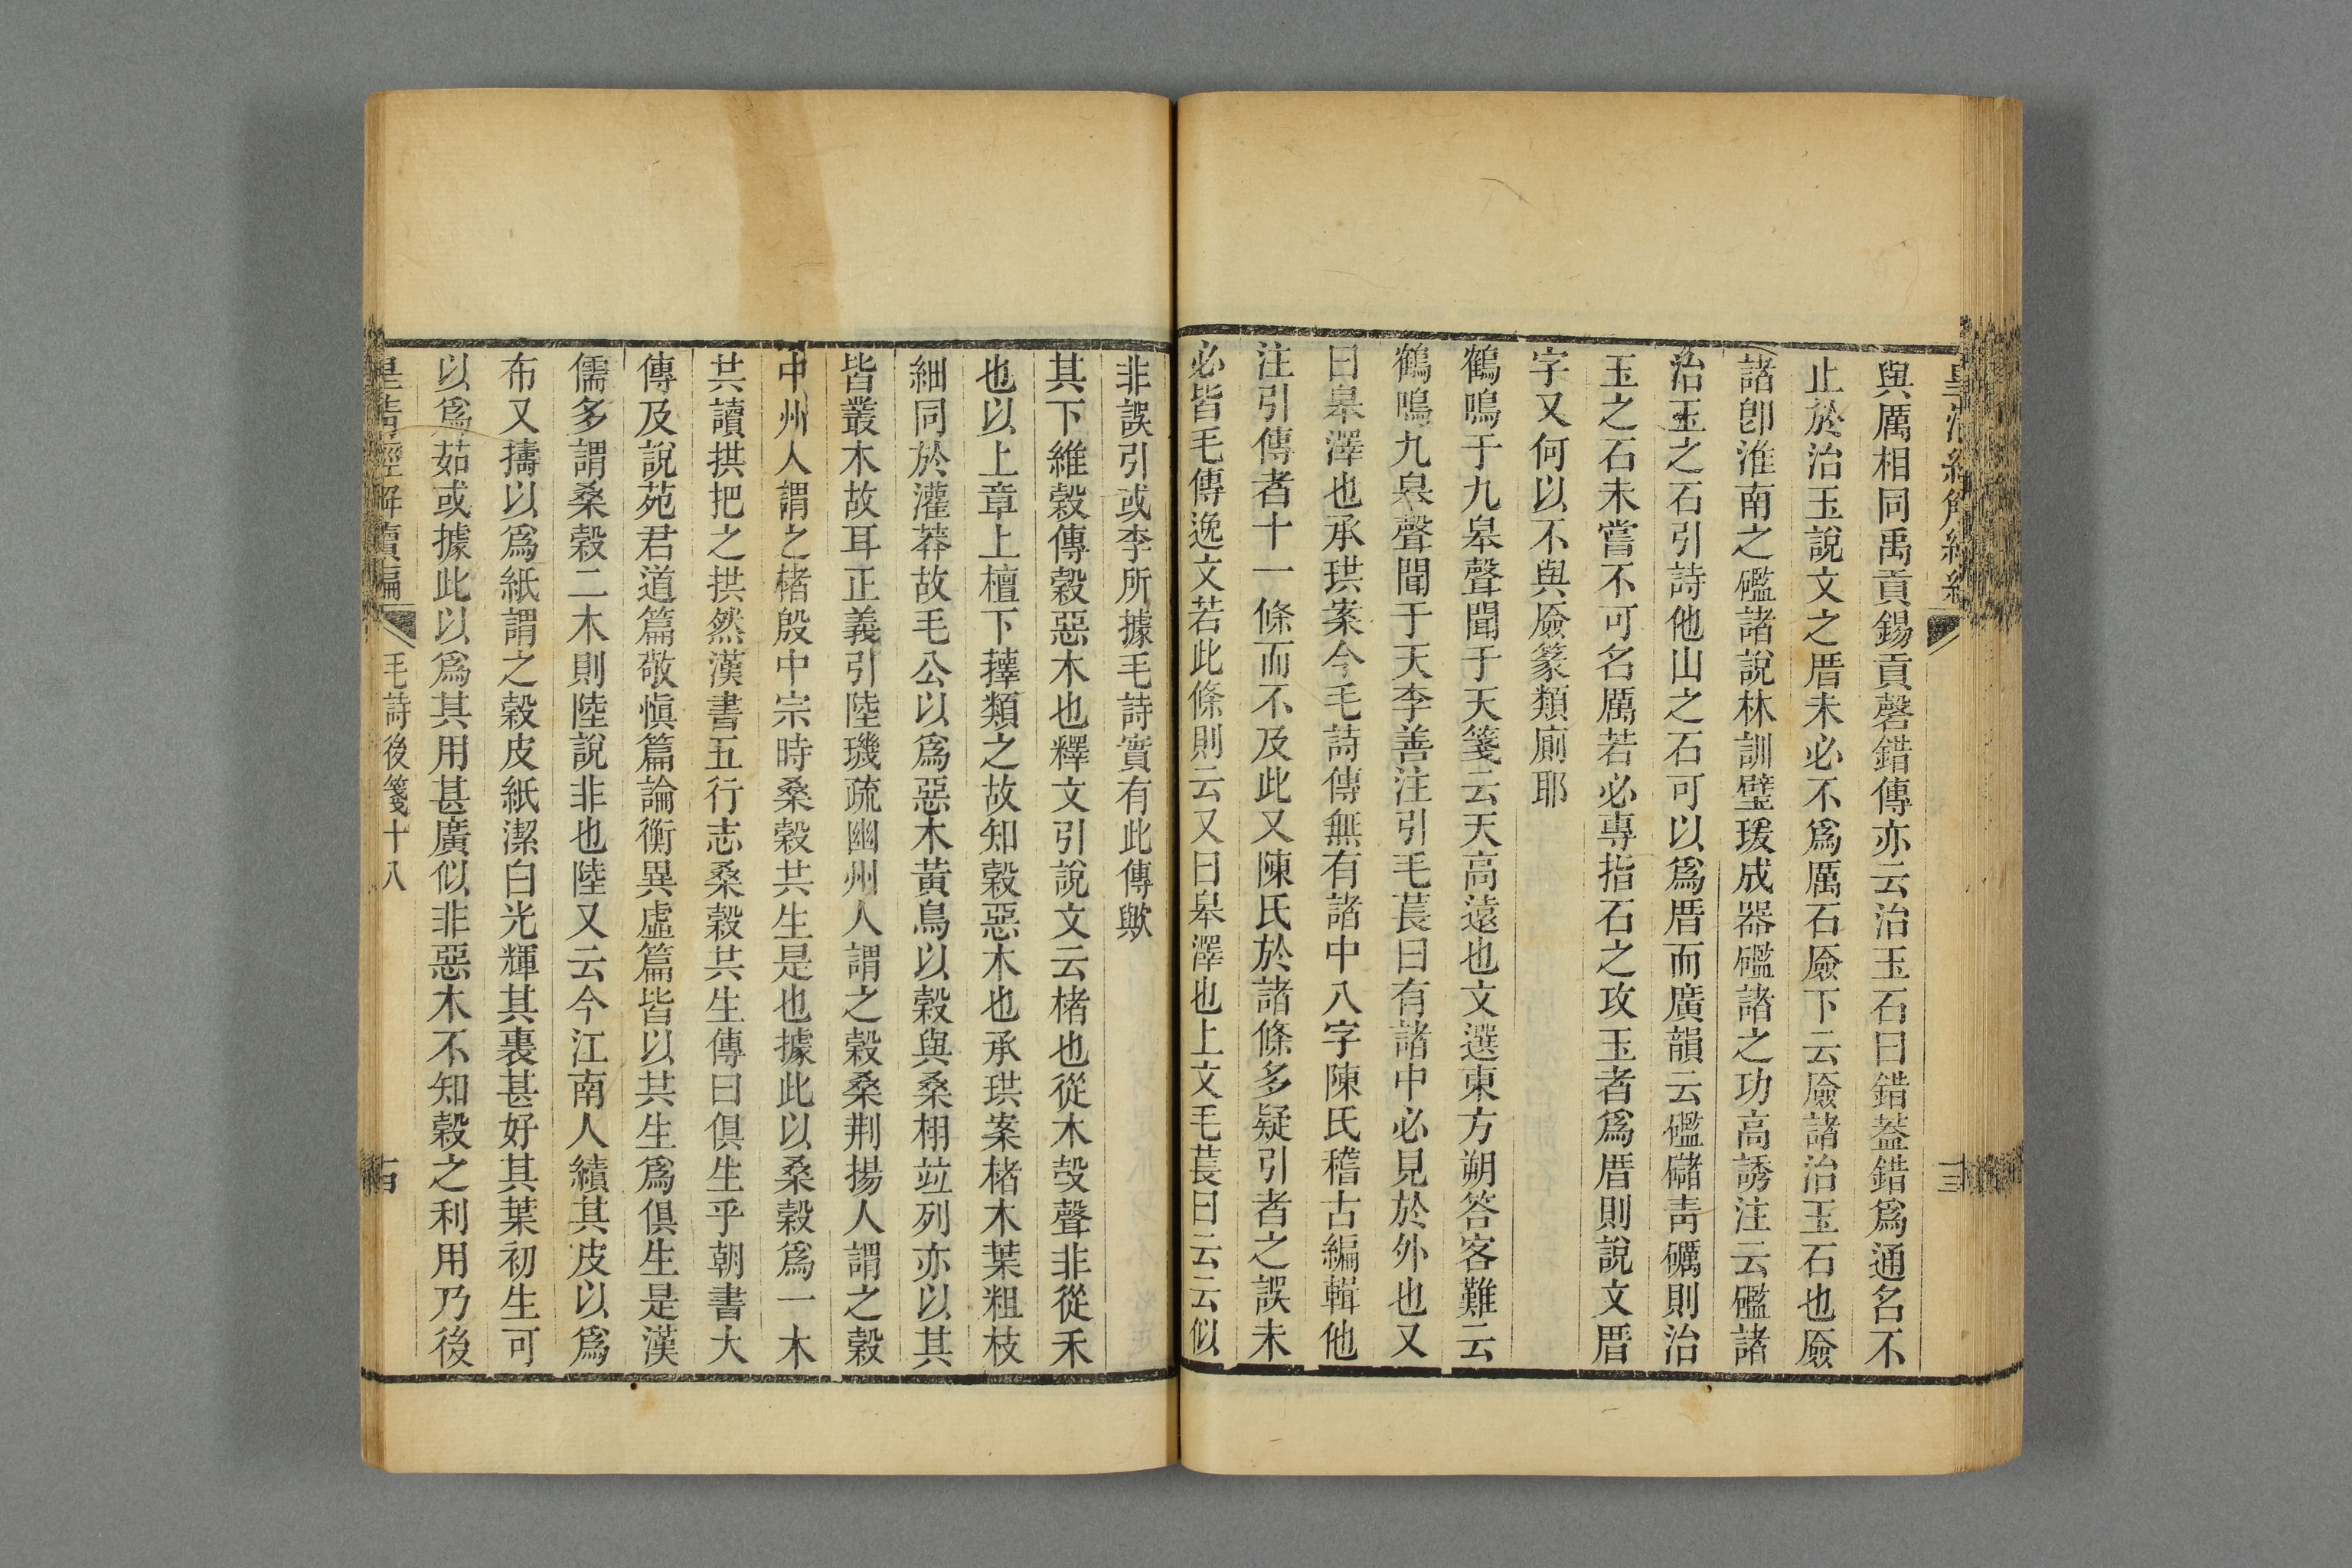 與厲相同禹貢錫貢磬錯傳亦云治玉石曰錯蓋錯爲通名不
止於治玉說文之厝未必不爲厲石厱下云厱諸治玉石也厱
諸卽淮南之礛諸說林訓璧瑗成器礛諸之功高誘注云礛諸
治玉之石引詩他山之石可以爲厝而廣韻云礛䃴靑礪則治
玉之石未嘗不可名厲若必專指石之攻玉者爲厝則說文厝
字又何以不與厱篆類廁耶
鶴鳴于九皋聲聞于天箋云天高遠也文選東方朔答客難云
鶴鳴九皋聲聞于天李善注引毛萇曰有諸中必見於外也又
曰皋澤也承珙案今毛詩傳無有諸中八字陳氏稽古編輯他
注引傳者十一條而不及此又陳氏於諸條多疑引者之誤未
必皆毛傳逸文若此條則云又曰皋澤也上文毛萇曰云云似
非誤引或李所據毛詩實有此傳歟
其下維榖傳榖惡木也釋文引說文云楮也從木㱿聲非從禾
也以上章上檀下蘀類之故知榖惡木也承珙案楮木葉粗枝
細同於灌莽故毛公以爲惡木黃鳥以榖與桑栩竝列亦以其
皆叢木故耳正義引陸璣疏幽州人謂之榖桑荆揚人謂之榖
中州人謂之楮殷中宗時桑榖共生是也據此以桑榖爲一木
共讀拱把之拱然漢書五行志桑榖共生傳曰俱生乎朝書大
傳及說苑君道篇敬愼篇論衡異虛篇皆以共生爲俱生是漢
儒多謂桑榖二木則陸說非也陸又云今江南人績其皮以爲
布又擣以爲紙謂之榖皮紙潔白光輝其裏甚好其葉初生可
以爲茹或據此以爲其用甚廣似非惡木不知榖之利用乃後
皇淸經解續編 毛詩後箋十八